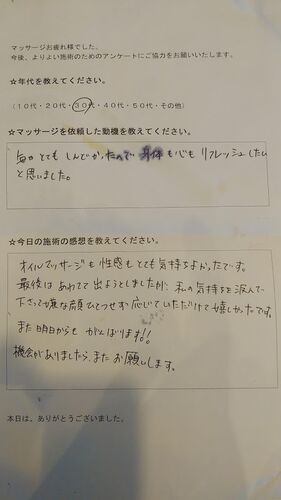 マッサージお疲れ様でした。
今後、よりよい施術のためのアンケートにご協力をお願いいたします。
☆年代を教えてください。
（10代・20代・30代・40代・50代・その他）
☆マッサージを依頼した動機を教えてください。
毎日とてもしんどかったので 身体も心も リフレッシュしたい
と思いました。
☆今日の施術の感想を教えてください。
オイルマッサージも性感もとても気持ちよかったです。
最後はあわてて出ようとしましたが、私の気持ちを汲んで
下さって嫌な顔ひとつせず応じていただけて嬉しかったです。
また明日からも がんばります!!
機会がありましたら、またお願いします。
本日は、ありがとうございました。